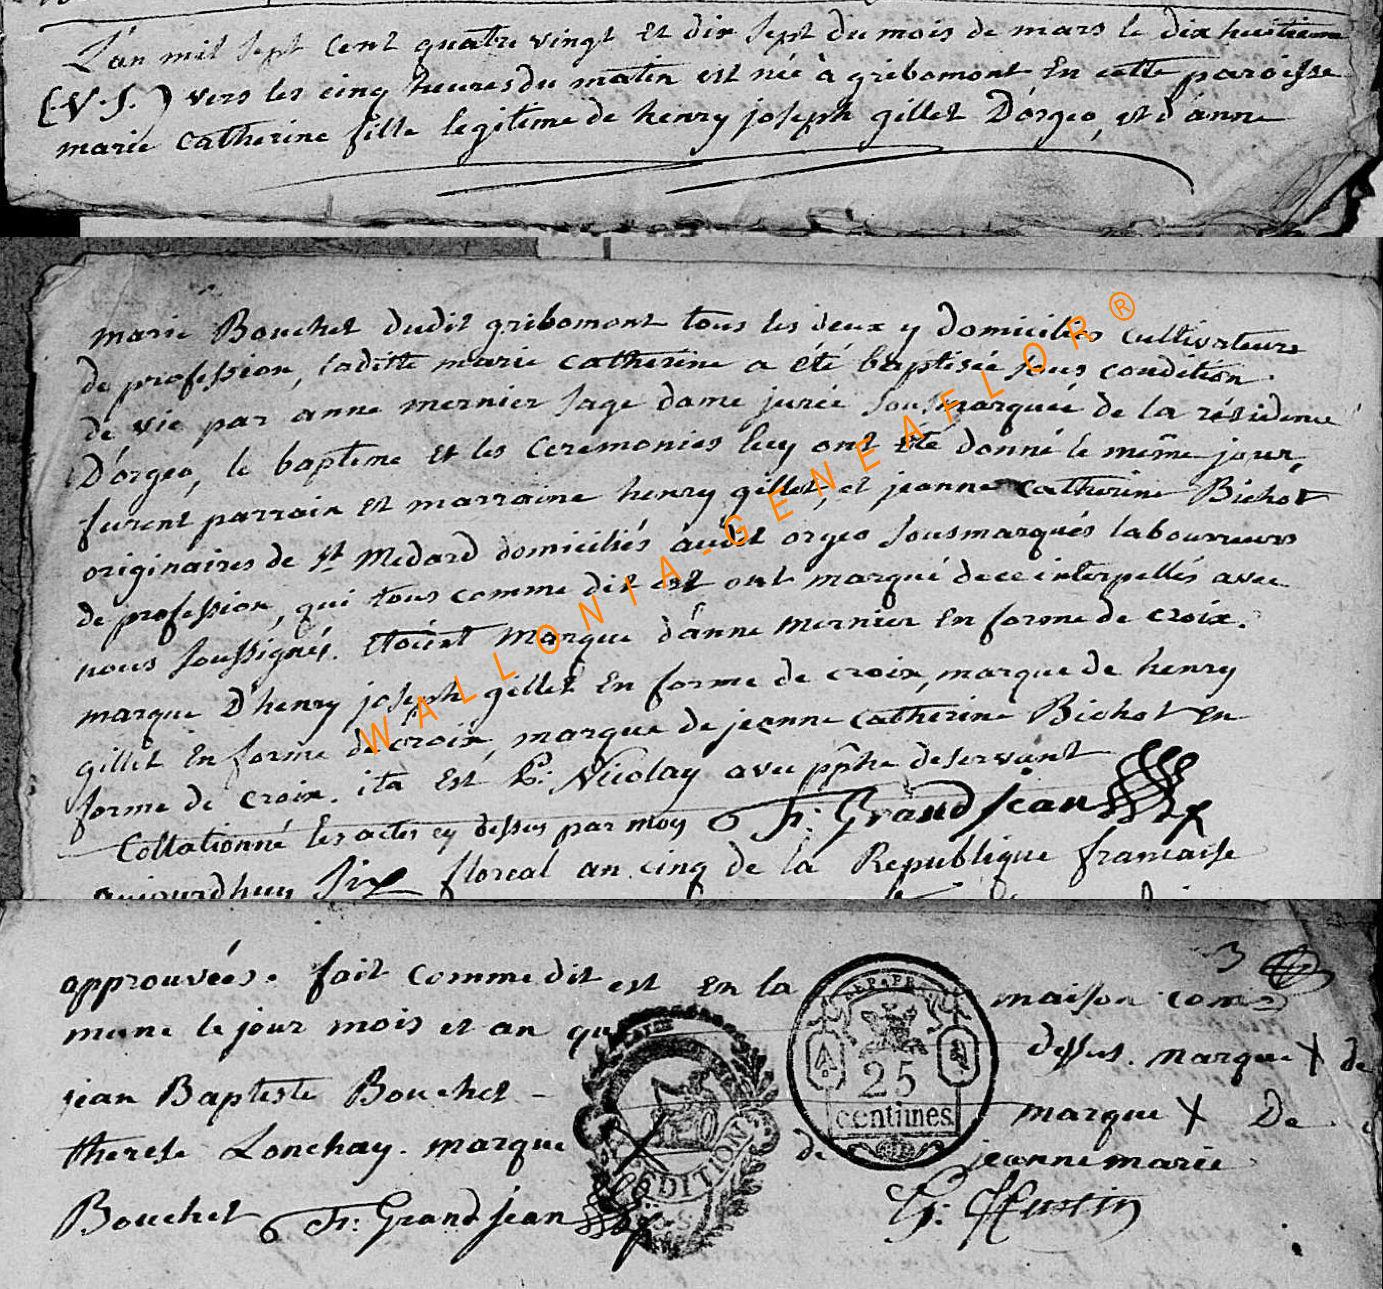 L'an mil sept cent quatre vingt et dix sept du mois de mars le dix huitieme
(V.S.) vers les cinq heures du matin est née à gribomont En cette paroisse
marie catherine fille legitime de henry joseph gillet D'orgeo, et d'anne
marie Bouchet dudit gribomont tous les deux y domiciliés cultivateurs
de profession, laditte marie catherine a été baptisée sous condition
de vie par anne mernier sage dame jurée sousmarquée de la résidence
D'orgeo, le baptême et les ceremonies luy ont été donné le même jour,
furent parrain et marraine henry gillet, et jeanne catherine Bichot
originaires de St Medard domiciliés audit orgeo sousmarqués laboureurs
de profession, qui tous comme dit est ont marqué de ce interpellés avec
nous soussignés. Etoient marque d'anne mernier En forme de croix.
marque D'henry joseph gillet En forme de croix, marque de henry
gillet En forme de croix, marque de jeanne catherine Bichot En
forme de croix. ita Est Nicolay deservant
Collationné les actes cy dessus par moy Fr: Grandjean
aujourdhuy six floreal an cinq de la Republique francaise
approuvées. fait comme dit est En la maison com=
mune le jour mois et an que dessus. marque X de
jean Baptiste Bouchet - marque X De
therese Lonchay. marque X de jeanne marie
Bouchet Fr: Grandjean
3
REP. FRA.
25
centimes
WALLONIA-GENEAFLOR®